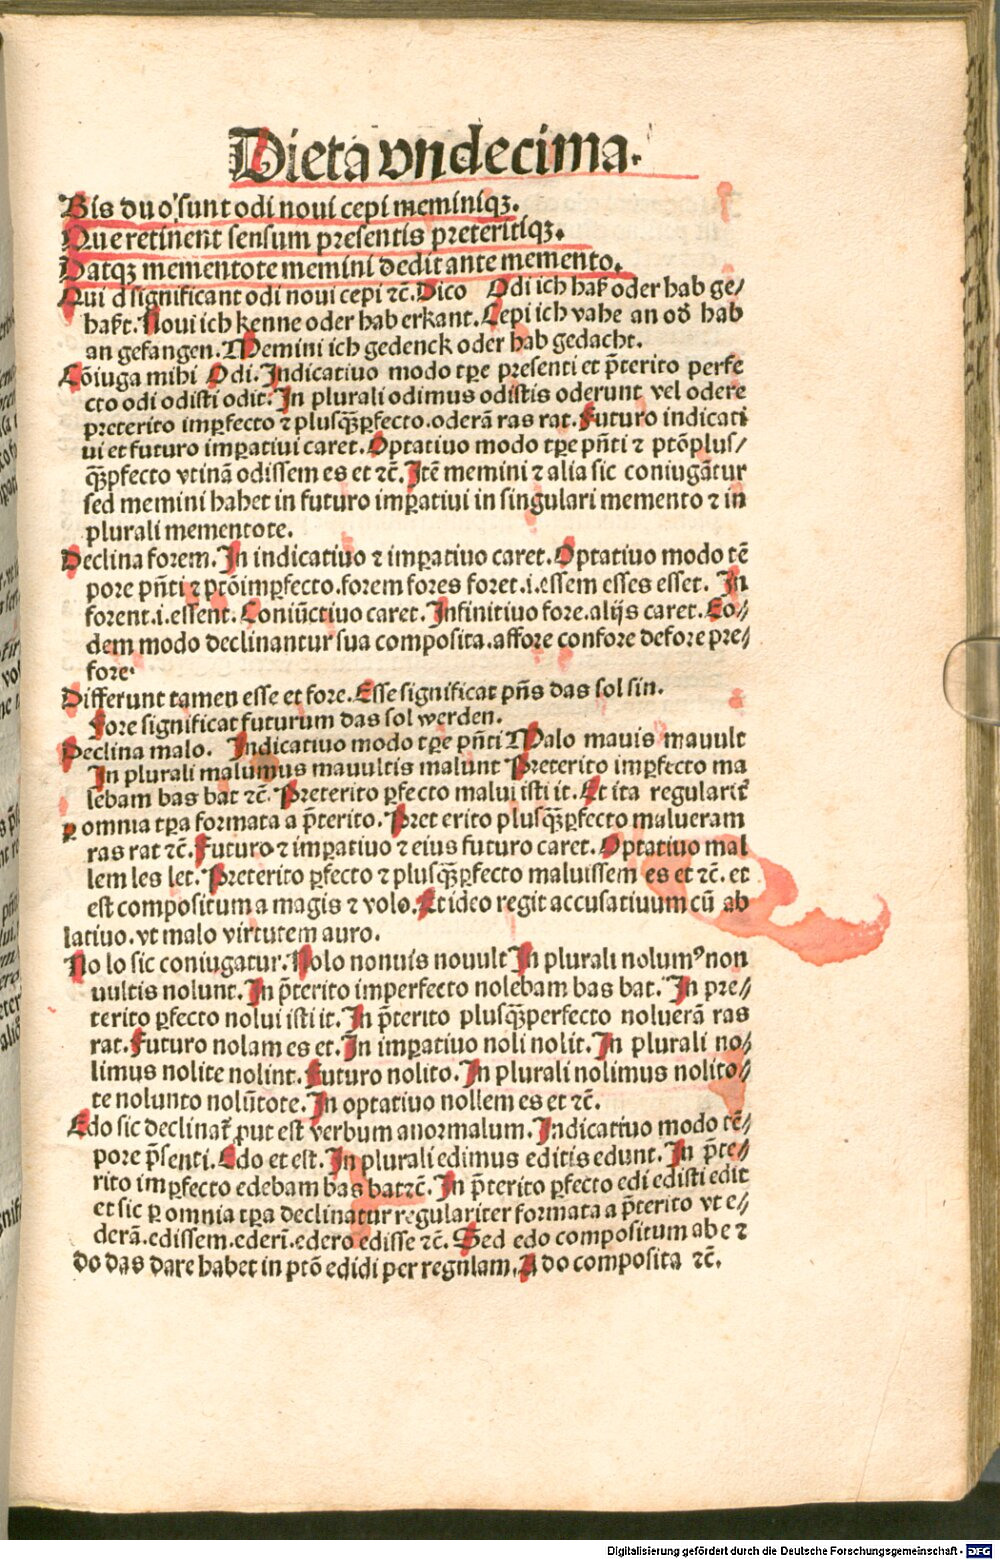 Dieta vndecima.
Bis duo sunt odi noui cepi meminiqꝫ.
Que retinent sensum presentis preteritiqꝫ.
Datqꝫ mementote memini dedit ante memento.
Qui d significant odi noui cepi ⁊c̄. Dico Odi ich haß oder hab ge⸗
haßt. Noui ich kenne oder hab erkant. Cepi ich vahe an od̕ hab
an gefangen. Memini ich gedenck oder hab gedacht.
Cōiuga mihi Odi. Indicatiuo modo tꝑe presenti et p̄terito perfe
cto odi odisti odit. In plurali odimus odistis oderunt vel odere
preterito imꝑfecto ⁊ plusqꝫ̄ꝑfecto. oderā ras rat. Futuro indicati
ui et futuro imꝑatiui caret. Optatiuo modo tꝑe pn̄ti ⁊ ptō plus⸗
qꝫ̄pfecto vtinā odissem es et ⁊c̄. Itē memini ⁊ alia sic coniugātur
sed memini habet in futuro imꝑatiui in singulari memento ⁊ in
plurali mementote.
Declina forem. In indicatiuo ⁊ imꝑatiuo caret. Optatiuo modo tē
pore pn̄ti ⁊ ptō imꝑfecto. forem fores foret. i. essem esses esset. In
forent. i. essent. Coniūctiuo caret. Infinitiuo fore. alijs caret. Eo⸗
dem modo declinantur sua composita. affore confore defore pre⸗
fore.
Differunt tamen esse et fore. Esse significat pn̄s das sol sin.
Fore significat futurum das sol werden.
Declina malo. Indicatiuo modo tꝑe pn̄ti Malo mauis mauult
In plurali malumus mauultis malunt Preterito imꝑfecto ma
lebam bas bat ⁊c̄. Preterito ꝑfecto malui isti it. Et ita regularit̄
ꝑ omnia tꝑa formata a p̄terito. Pret erito plusqꝫ̄ꝑfecto malueram
ras rat ⁊c̄. Futuro ⁊ imꝑatiuo ⁊ eius futuro caret. Optatiuo mal
lem les let. Preterito ꝑfecto ⁊ plusqꝫ̄ꝑfecto maluissem es et ⁊c̄. et
est compositum a magis ⁊ volo. Et ideo regit accusatiuum cū ab
latiuo. vt malo virtutem auro.
No lo sic coniugatur. Nolo nonuis nouult In plurali nolumꝰ non
vultis nolunt. In p̄terito imperfecto nolebam bas bat. In pre⸗
terito ꝑfecto nolui isti it. In p̄terito plusqꝫ̄perfecto noluerā ras
rat. Futuro nolam es et. In imꝑatiuo noli nolit. In plurali no⸗
limus nolite nolint. Futuro nolito. In plurali nolimus nolito⸗
te nolunto nolūtote. In optatiuo nollem es et ⁊c̄.
Edo sic declinat̄ ꝓut est verbum anormalum. Indicatiuo modo tē⸗
pore p̄senti. Edo et est. In plurali edimus editis edunt. In p̄te⸗
rito imꝑfecto edebam bas bat ⁊c̄. In p̄terito ꝑfecto edi edisti edit
et sic ꝑ omnia tꝑa declinatur regulariter formata a p̄terito vt e⸗
derā. edissem. ederī. edero edisse ⁊c̄. Sed edo compositum ab e ⁊
do das dare habet in ptō edidi per regulam. A do composita ⁊c̄.
Digitalisierung gefördert durch die Deutsche Forschungsgemeinschaft - DFG